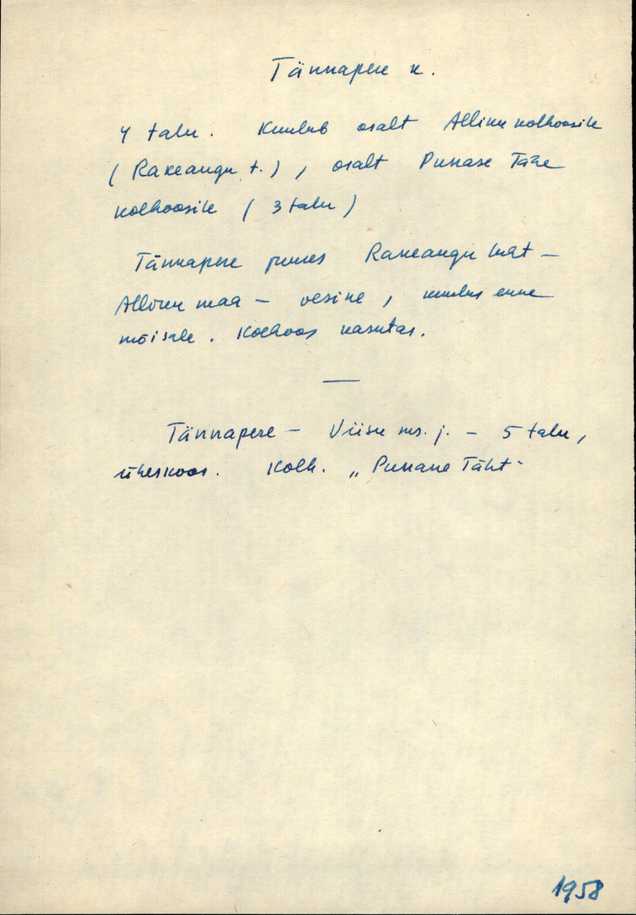 Tännapere k.
4 talu. Kuulub osalt Alliku kolhoosile
(Rakeangu t.), osalt Punase Tähe
kolhoosile (3 talu)
Tännapere juures Rakeangu
maa – vesine, kuulus enne
mõisale. Kolhoos kasutas.
Tännapere – Viisu ms. j. – 5 talu,
üheskoos. Kolh. „Punane Täht"
1958